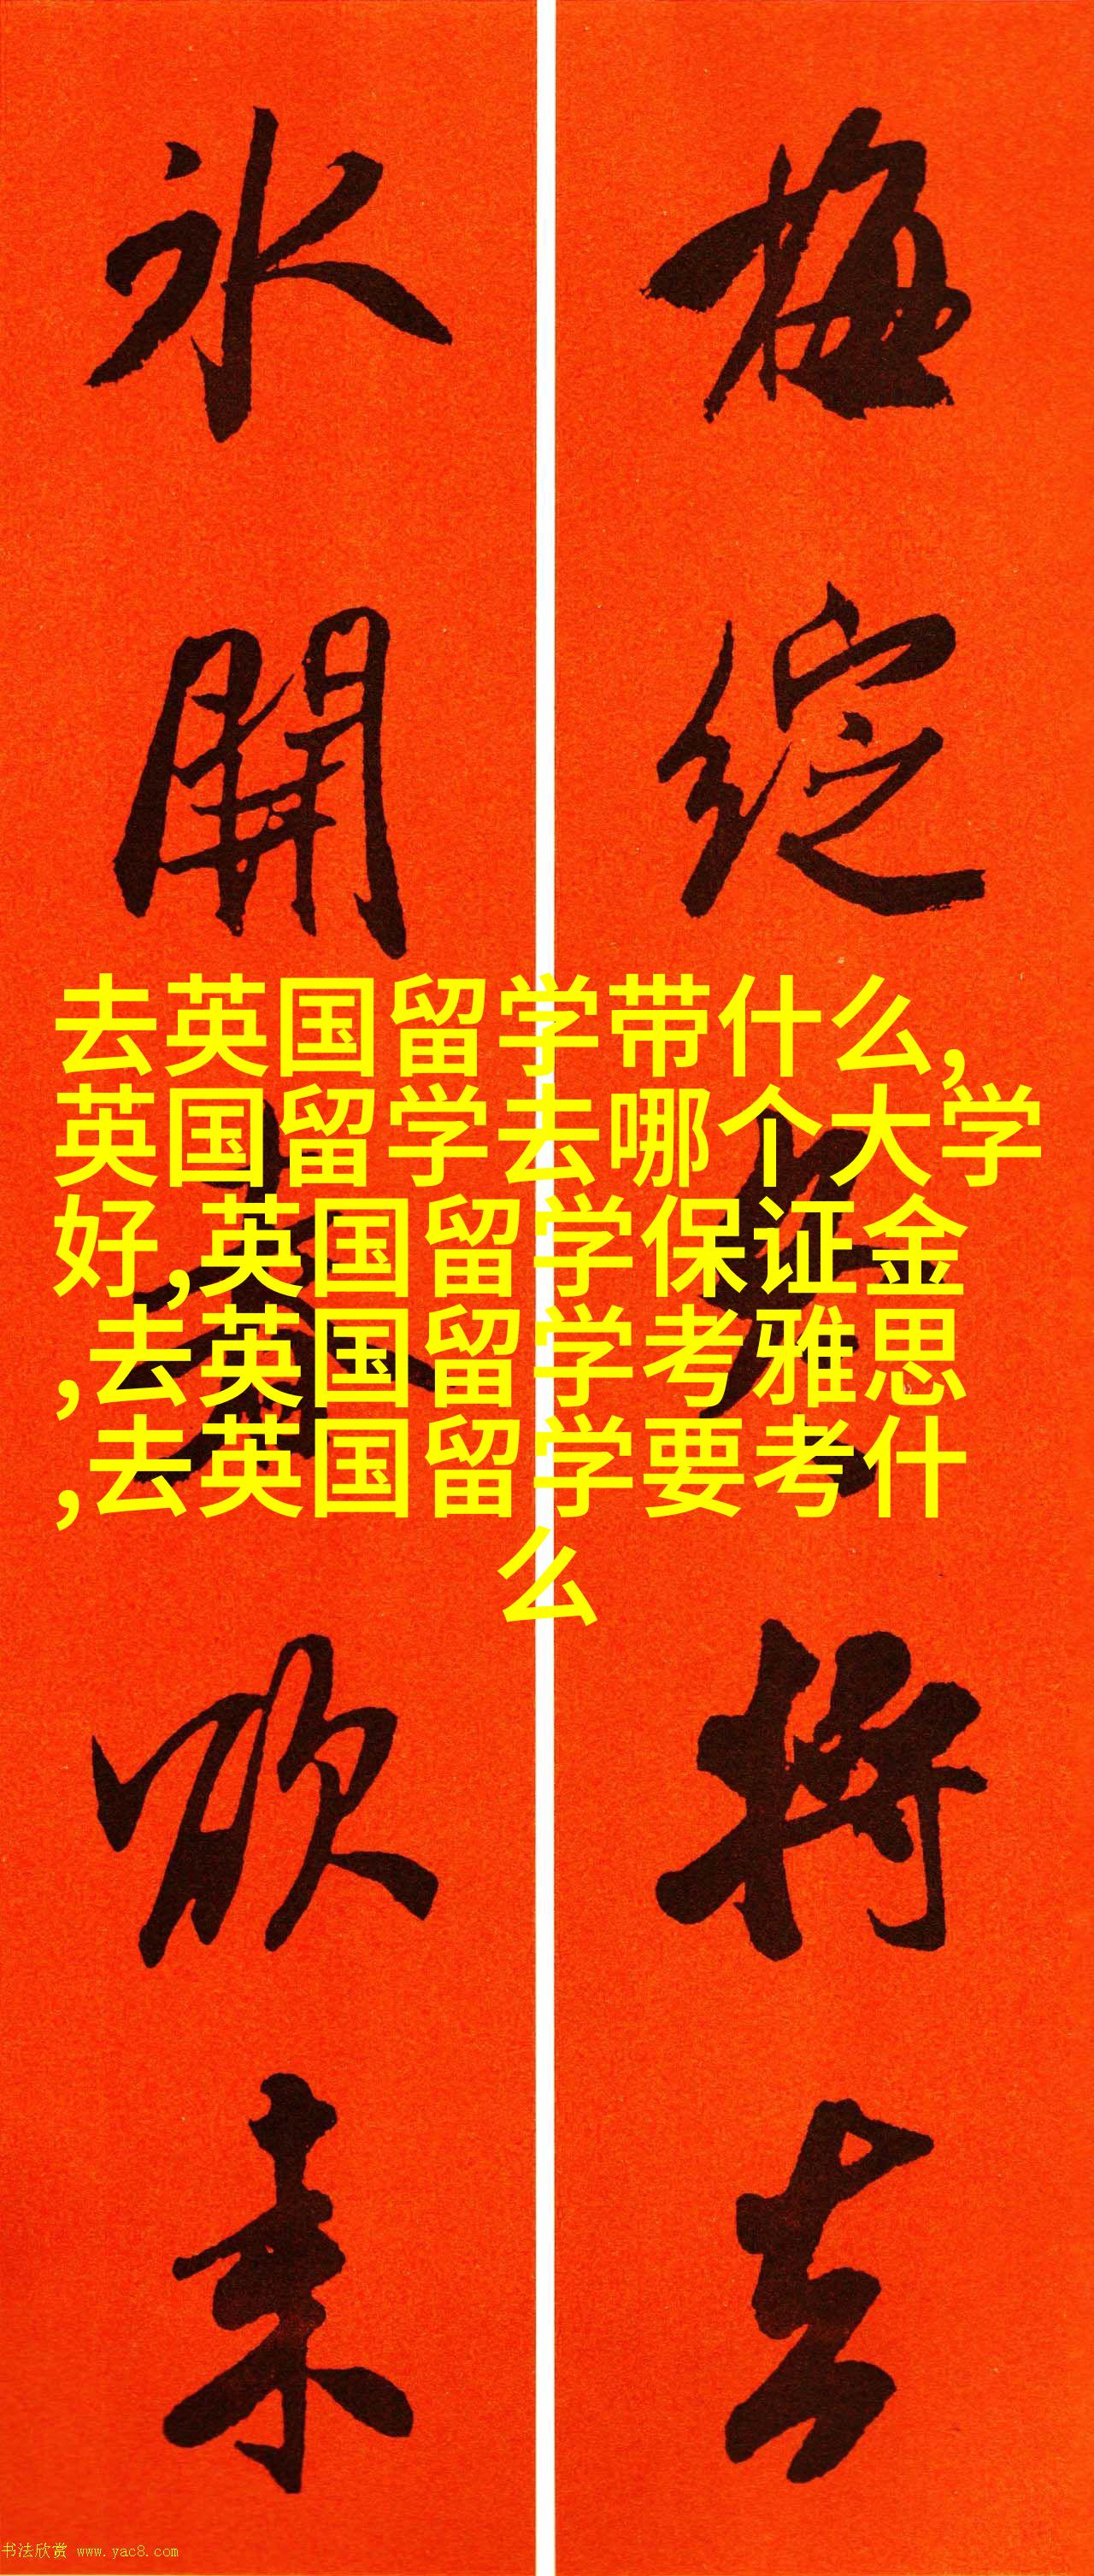 梅綻將去
冰開欲来
去英国留学带什么,
英国留学去哪个大学
好,英国留学保证金
,去英国留学考雅思
,去英国留学要考什
么
书法欣赏 www.yac8.com